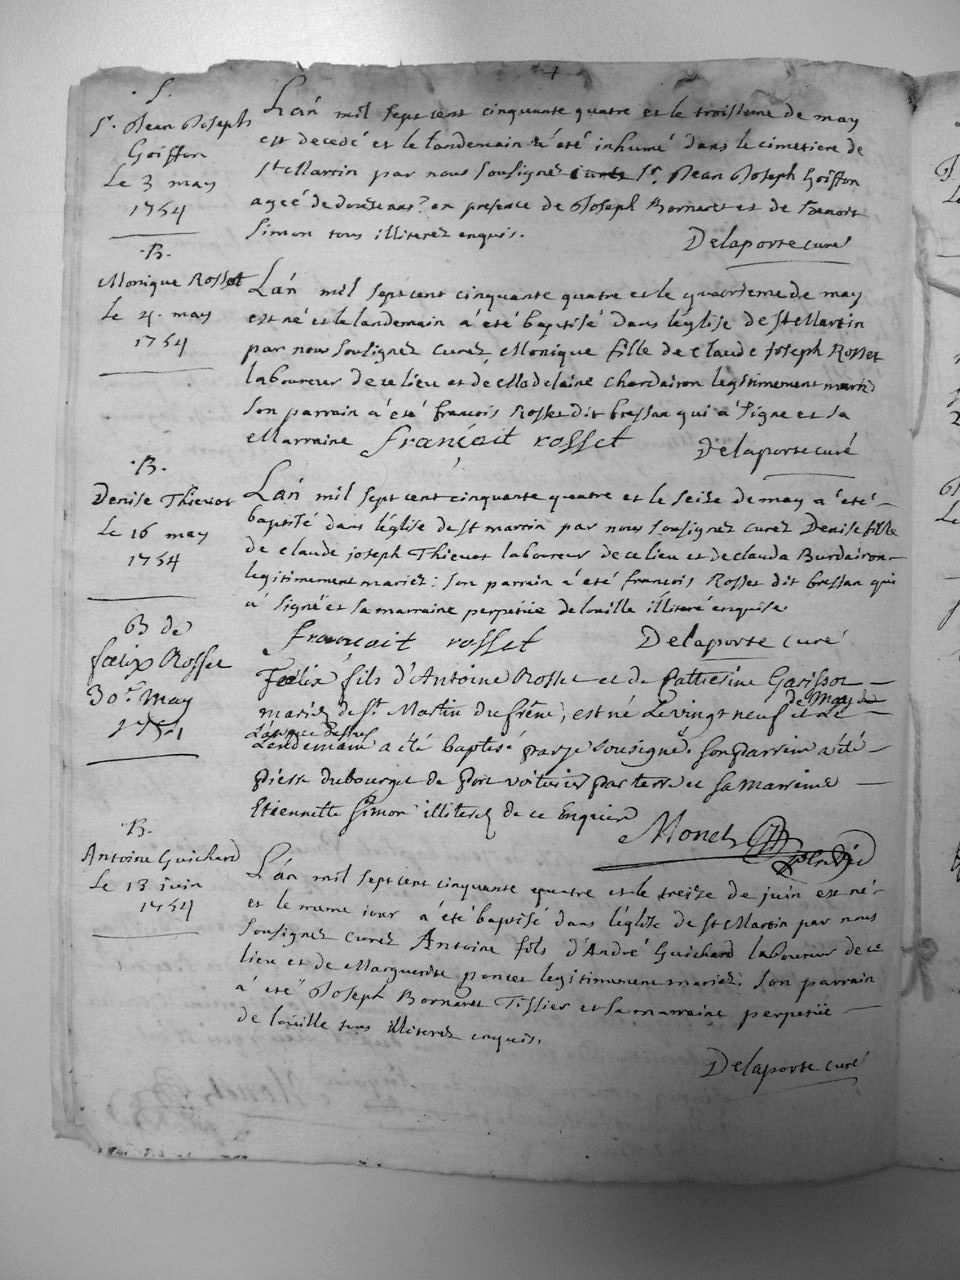 .S.
Sr. Jean Joseph
Goiffon
Le 3 may
1754
L'an mil sept cent cinquante quatre et le troisieme de may
est decedé et le landemain a été inhumé dans le cimetiere de
St Martin par nous soussignez curé Sr. Jean Joseph Goiffon
agée de douze ans en presence de Joseph Bornaret et de Benoit
Simon tous illiterez enquis.
Delaporte curé
.B.
Monique Rosset
Le 4. may
1754
L'an mil sept cent cinquante quatre et le quatrieme de may
est né et le landemain a été baptisé dans l'église de St Martin
par nous soussignez curez Monique fille de Claude Joseph Rosset
laboureur de ce lieu et de Madelaine Chardairon legitimement mariez
son parrain a été francois Rosset dit bressan qui a signé et sa
Marraine
françait rosset
Delaporte curé
.B.
Denise Thievot
Le 16 may
1754
L'an mil sept cent cinquante quatre et le seize de may a été
baptisé dans l'église de st martin par nous soussignez curez Denise fille
de claude joseph Thievot laboureur de ce lieu et de clauda Burdairon
legitimement mariez : son parrain a été francois Rosset dit bressan qui
a signé et sa marraine perpetüe delouille illiteré enquise
françait rosset
Delaporte curé
B de
fœlix Rosset
30e May
1754
Fœlix fils d'Antoine Rosset et de Catherine Garisson
de May
mariez de St Martin du frêne, est né le vingt neuf et le
Lendemain a été baptisé par je sousigné. son parrein a été
pierre dubourget de port voiturier par terre et sa marreine
Etiennette Simon illiterez de ce Enquis
Monet
.B.
Antoine Guichard
Le 13 juin
1754
L'an mil sept cent cinquante quatre et le treize de juin est né
et le mume iour a été baptisé dans l'église de St Martin par nous
soussignez curez Antoine fils d'André Guichard laboureur de ce
lieu et de Marguerite poncet legitimement mariez. son parrain
a été Joseph Bornaret Tissier et sa marraine perpetüe
de louille tous illiterez enquis.
Delaporte curé